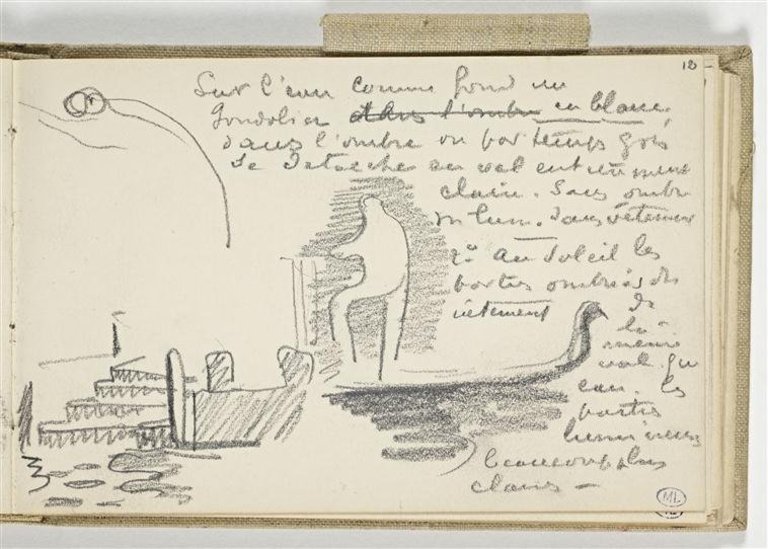 18
Sur l'eau comme fond un
Gondolier dans l'ombre en blanc,
dans l'ombre ou par temps gris
se detache en val entièrement
clair. Sans ombre
ni lum. dans vêtement
2° Au Soleil les
parties ombrées des
vêtement
de
la
meme
val. qu
eau. les
parties
lumineuses
beaucoup plus
clairs —
ML